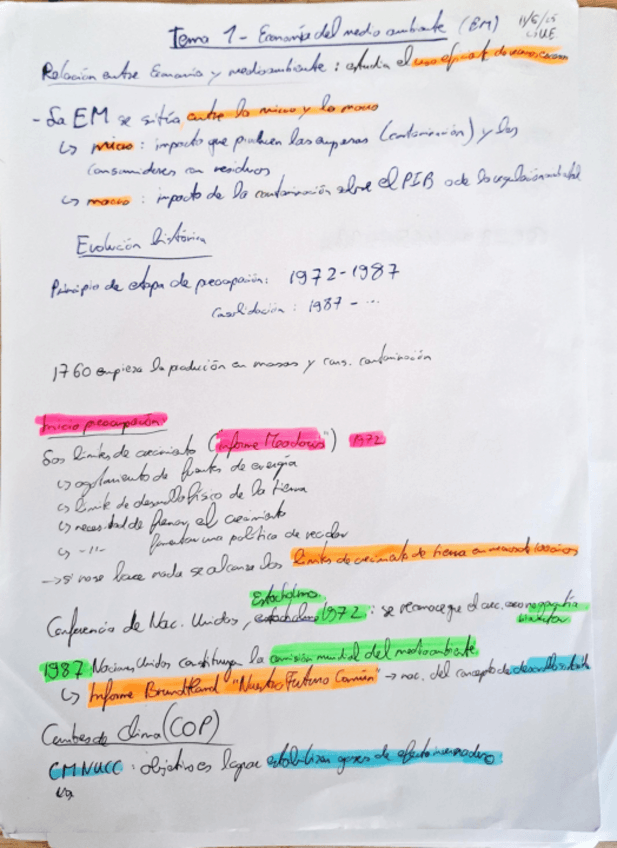 Tema 1 - Economía del medio ambiente (EM)
Relación entre Economía y medioambiente: estudia el uso eficiente de
- La EM se sitúa entre la micro y la macro
↳ micro: impacto que producen las empresas (contaminación) y los
consumidores con residuos
↳ macro: impacto de la contaminación sobre el PIB o de la regulación ambiental
Evolución histórica
Principio de etapa de preocupación: 1972-1987
Consolidación: 1987 - ...
1760 empieza la produción en massas y cons. contaminación
Inicio preocupación:
Los límites de crecimiento ("informe Meadows") 1972
↳ agotamiento de fuentes de energía
↳ límite de desarrollo físico de la tierra
↳ necesidad de frenar el crecimiento
↳ -"- fomentar una política de reciclar
→ si no se hace nada se alcanza los límites de crecimiento de tierra en menos de 100 años
Estocolmo
Conferencia de Nac. Unidos, 1972: se reconoce que el crec. econ no garantiza
bienestar
1987: Naciones Unidos constituyen la comisión mundial del medioambiente
↳ Informe Brundtland "Nuestro Futuro Común" → nac. del concepto de desarrollo
Cumbres de Clima (COP)
CMNUCC: objetivo es lograr estabilizar gases de efecto invernadero
↳